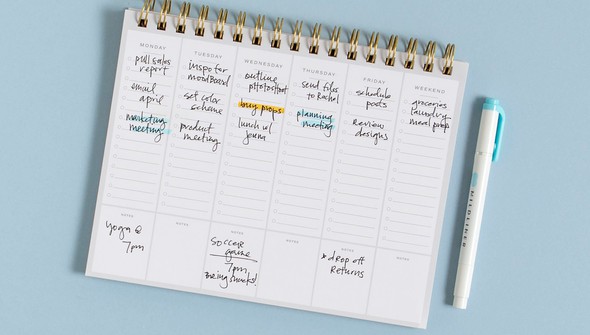 MONDAY
pull sales
report
email
april
marketing
meeting
NOTES
yoga @
7pm
TUESDAY
inspo for
moodboard
set color
scheme
product
meeting
NOTES
WEDNESDAY
outline
photoshoot
buy props
lunch w/
jenna
NOTES
SOCCER
game
7pm,
bring snacks!
THURSDAY
send files
to Rachel
planning
meeting
NOTES
FRIDAY
schedule
posts
Review
designs
NOTES
*drop off
Returns
WEEKEND
groceries
laundry
meal prep
NOTES
MILDLINER